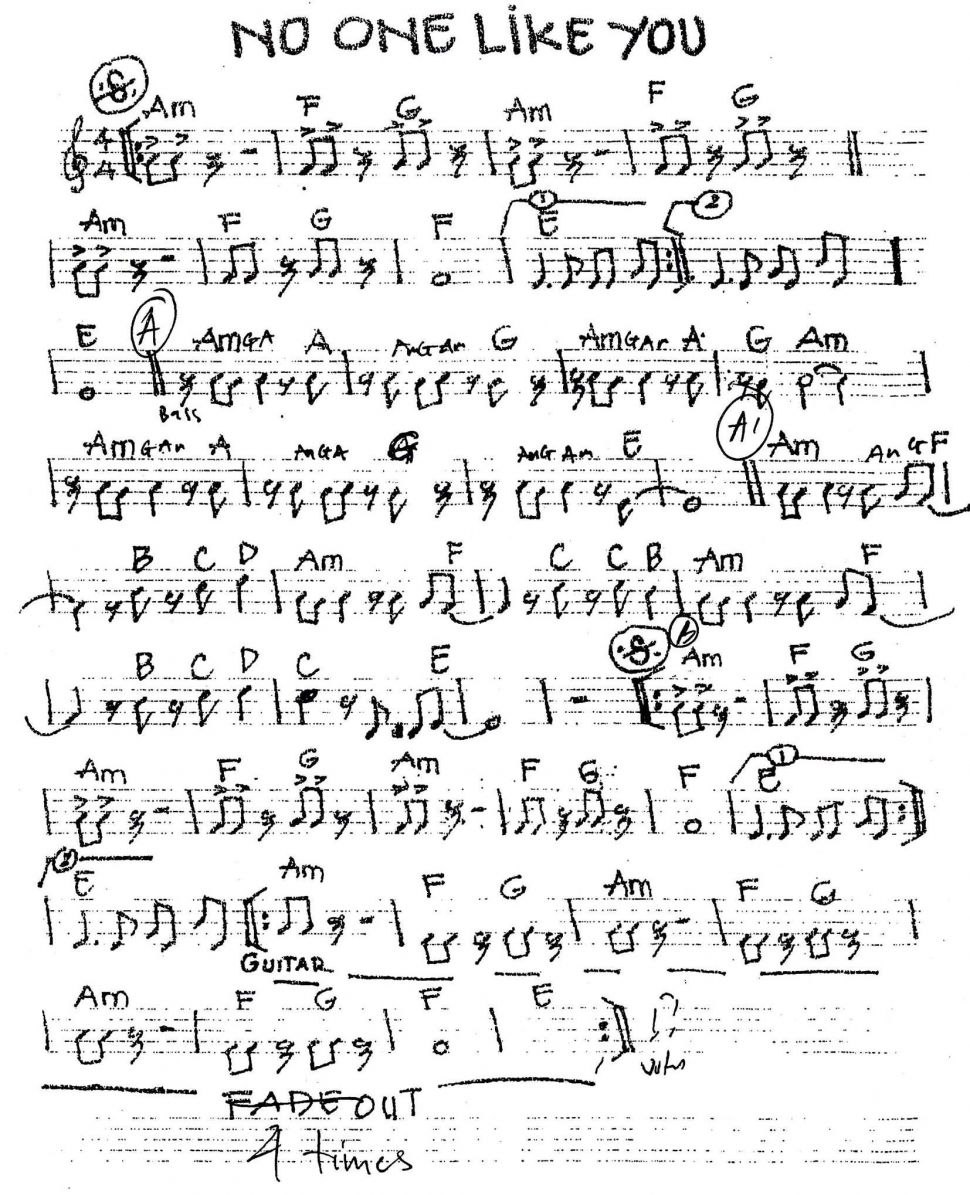 NO ONE LIKE YOU
Am F G Am F G
4
4
Am F G F 1 E 2
E A Am G A A Am G Am G Am G Am A G Am
Bass
Am G Am A Am G A G Am G Am E A1 Am Am G F
B C D Am F C C B Am F
B C D C E B Am F G
Am F G Am F G F 1 E
2 E Am F G Am F G
GUITAR
Am F G F E
FADE OUT
4 times